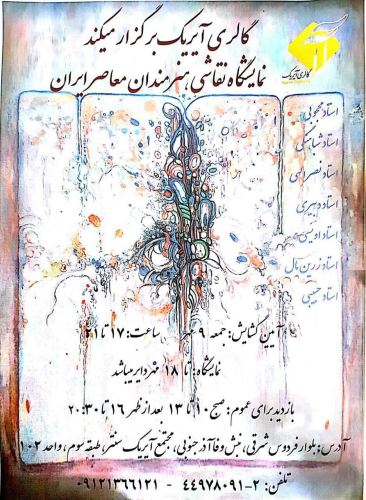 گالری آیریک برگزار میکند
نمایشگاه نقاشی هنرمندان معاصر ایران
گالری آیریک
استاد محجوبی
استاد شباهنگی
استاد نصراللهی
استاد دبیری
استاد اویسی
استاد زرین بال
استاد حبیبی
آیین گشایش: جمعه ۹ مهر ساعت: ۱۷ تا ۲۱
نمایشگاه: تا ۱۸ مهر دایر میباشد
بازدید برای عموم: صبح ۱۰ تا ۱۳ بعد از ظهر ۱۶ تا ۲۰:۳۰
آدرس: بلوار فردوس شرقی، نبش وفا آذر جنوبی، مجتمع آیریک سنتر، طبقه سوم، واحد ۱۰۲
تلفن: ۲-۴۴۹۷۸۰۹۱ - ۰۹۱۲۱۳۶۶۱۲۱